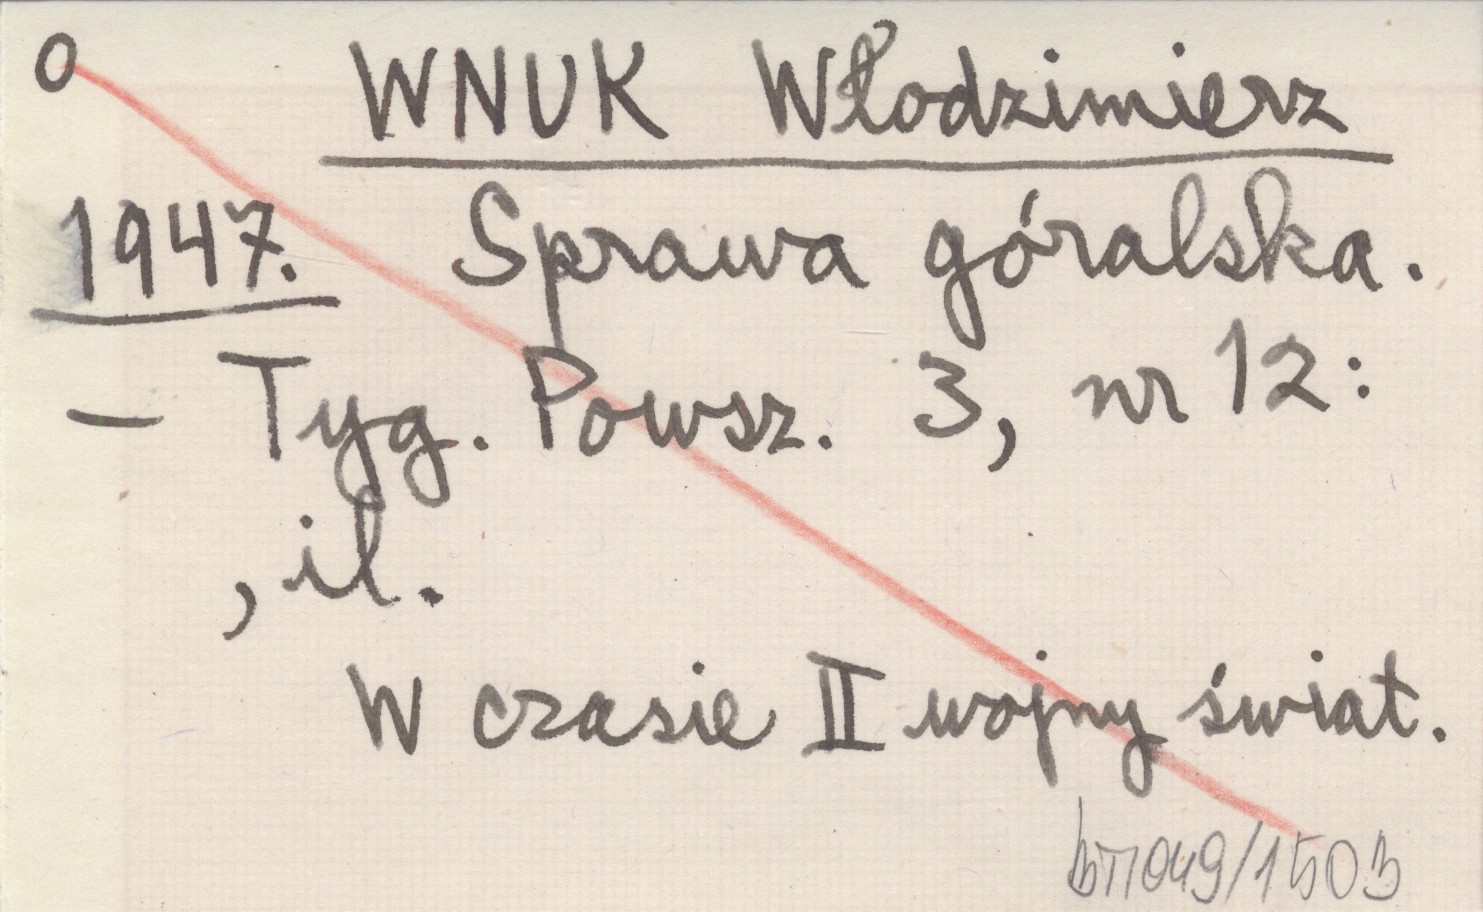 O WNUK Włodzimierz
1947. Sprawa góralska.
– Tyg. Powsz. 3, nr 12:
, il.
W czasie II wojny świat.
/1503